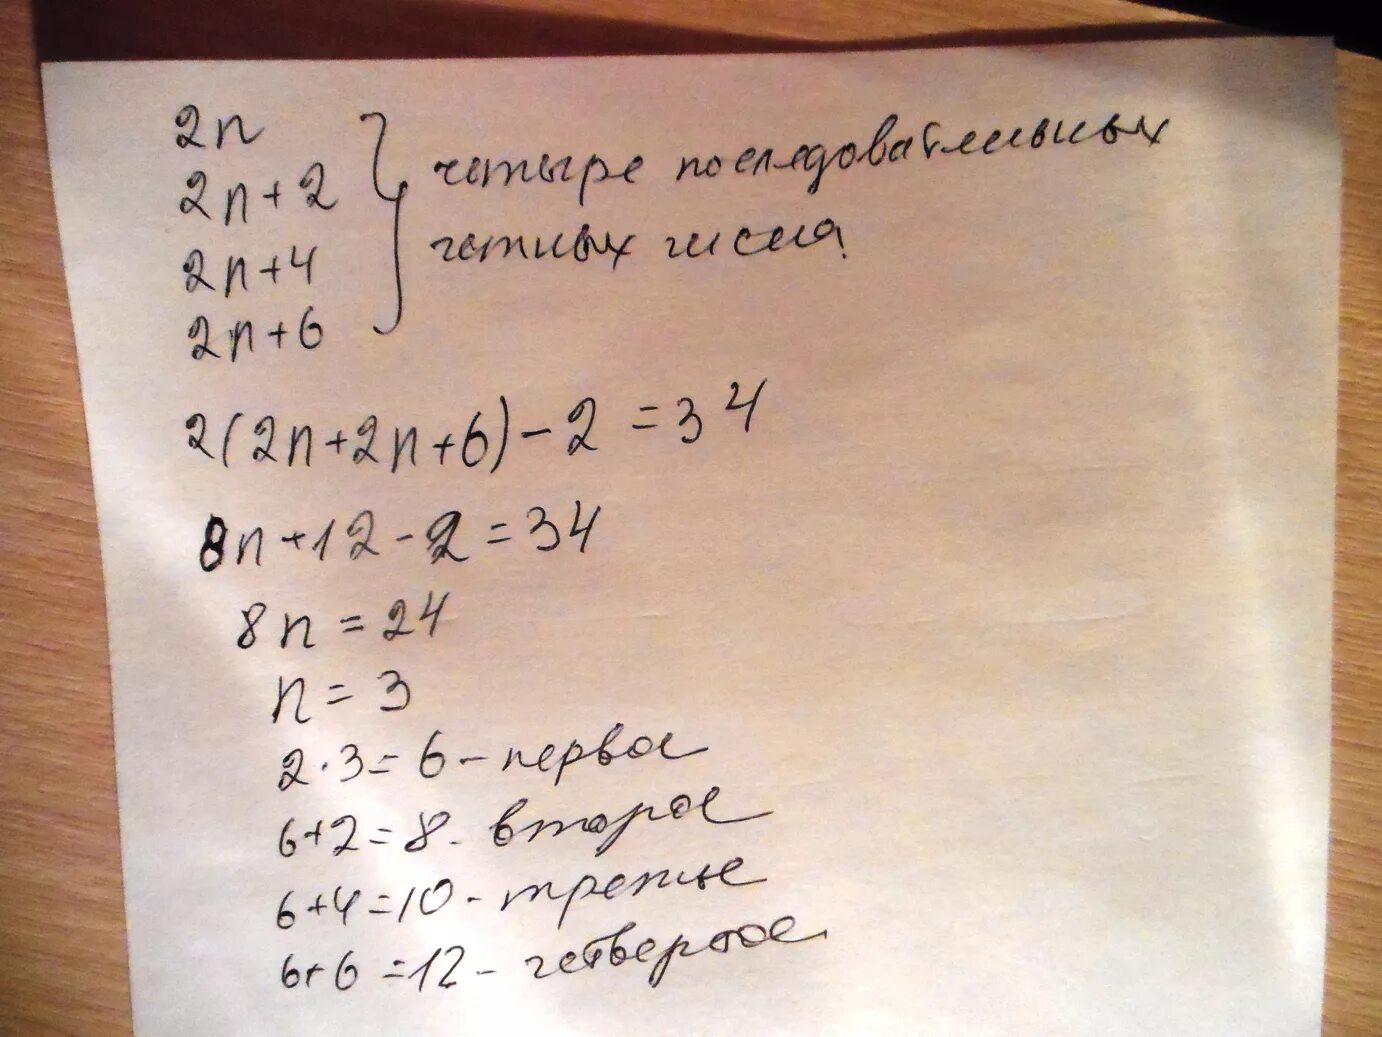 2n
2n+2
2n+4
2n+6
четыре последовательных
четных числа
2(2n+2n+6)-2=34
8n+12-2=34
8n=24
n=3
2·3=6-первое
6+2=8-второе
6+4=10-третье
6+6=12-четвертое